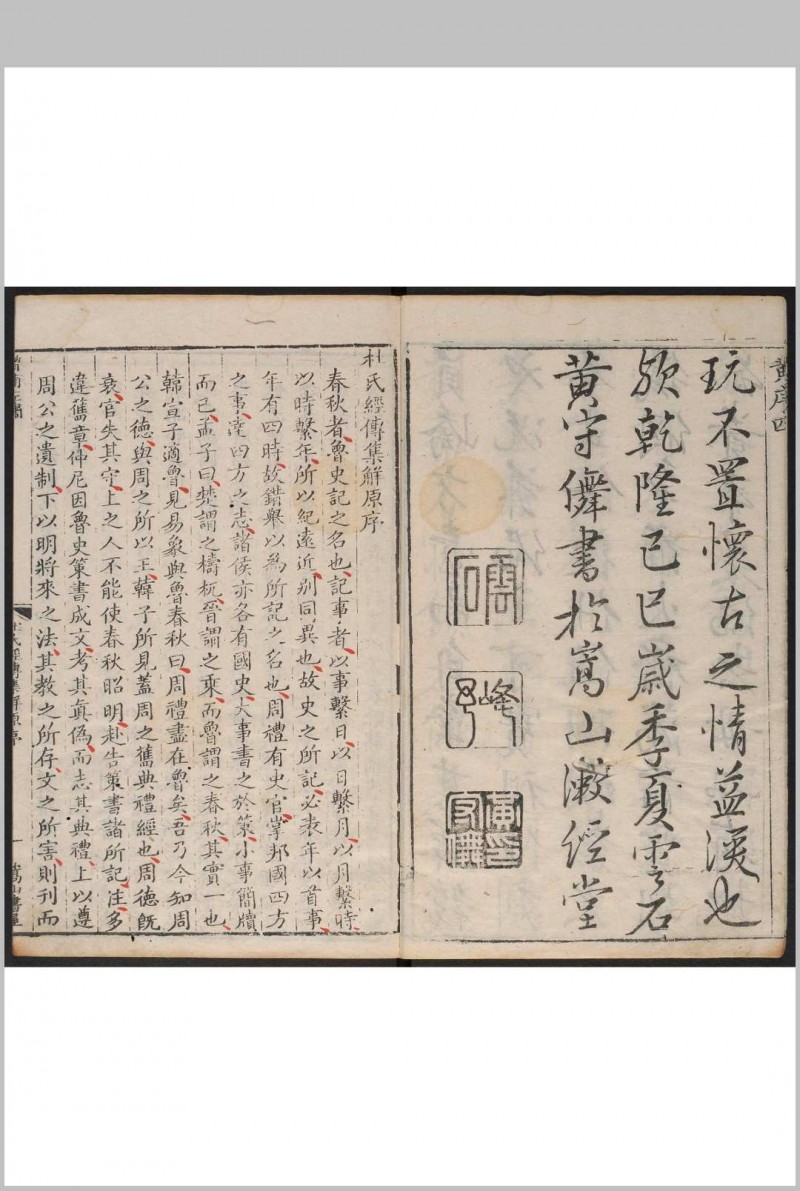 黃序四
玩不置懷古之情益深也
欤乾隆己巳歲季夏雲石
黃守儺書於嵩山漱經堂
雲
石
峰
黃
守
杜氏經傳集解原序
春秋者魯史記之名也記事者以事繫日以日繫月以月繫時
以時繫年所以紀遠近別同異也故史之所記必表年以首事
年有四時故錯舉以為所記之名也周禮有史官掌邦國四方
之事達四方之志諸侯亦各有國史大事書之於策小事簡牘
而已孟子曰楚謂之檮杌晉謂之乘而魯謂之春秋其實一也
韓宣子適魯見易象與魯春秋曰周禮盡在魯矣吾乃今知周
公之德與周之所以王韓子所見蓋周之舊典禮經也周德既
衰官失其守上之人不能使春秋昭明赴告策書諸所記注多
違舊章仲尼因魯史策書成文考其真偽而志其典禮上以遵
周公之遺制下以明將來之法其教之所存文之所害則刊而
杜氏經傳集解原序
一
嵩山書屋